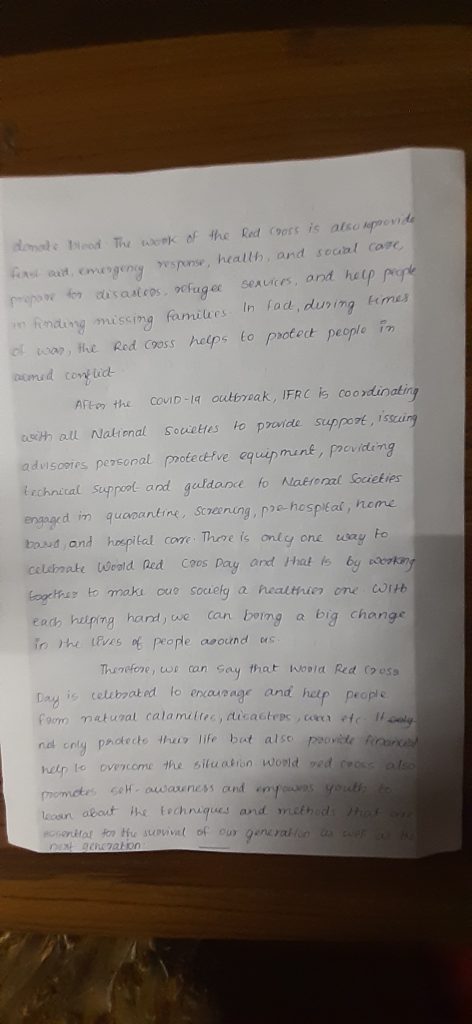 donate blood. The work of the Red Cross is also provide
first aid, emergency response, health, and social care,
prepare for disasters, refugee services, and help people
in finding missing families. In fact, during times
of war, the Red Cross helps to protect people in
armed conflict.
After the COVID-19 outbreak, IFRC is coordinating
with all National Societies to provide support, issuing
advisories personal protective equipment, providing
technical support and guidance to National Societies
engaged in quarantine, screening, pre-hospital, home
based, and hospital care. There is only one way to
celebrate World Red Cros Day and that is by working
together to make our society a healthier one. With
each helping hand, we can bring a big change
in the lives of people around us.
Therefore, we can say that World Red Cross
Day is celebrated to encourage and help people
from natural calamities, disasters, war etc. It
not only protects their life but also provide financial
help to overcome the situation World red cross also
promotes self-awareness and empowers youth to
learn about the techniques and methods that are
essential for the survival of our generation as well as the
next generation.